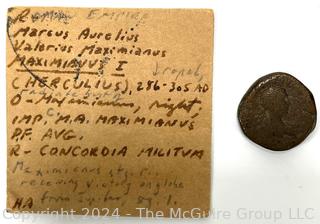 Roman EMPIRE
Marcus Aurelius
Valerius Maximianus
MAXIMIANUS I
(HERCULIUS), 286-305 AD
O- Maximianus, right,
IMP. C. M.A. MAXIMIANUS
P.F. AUG.
R- CONCORDIA MILITUM
Maximianus stg. r.
receiving victory on globe
from Jupiter, stg. l.
HA
Copyright © 2024 - The McGuire Group LLC